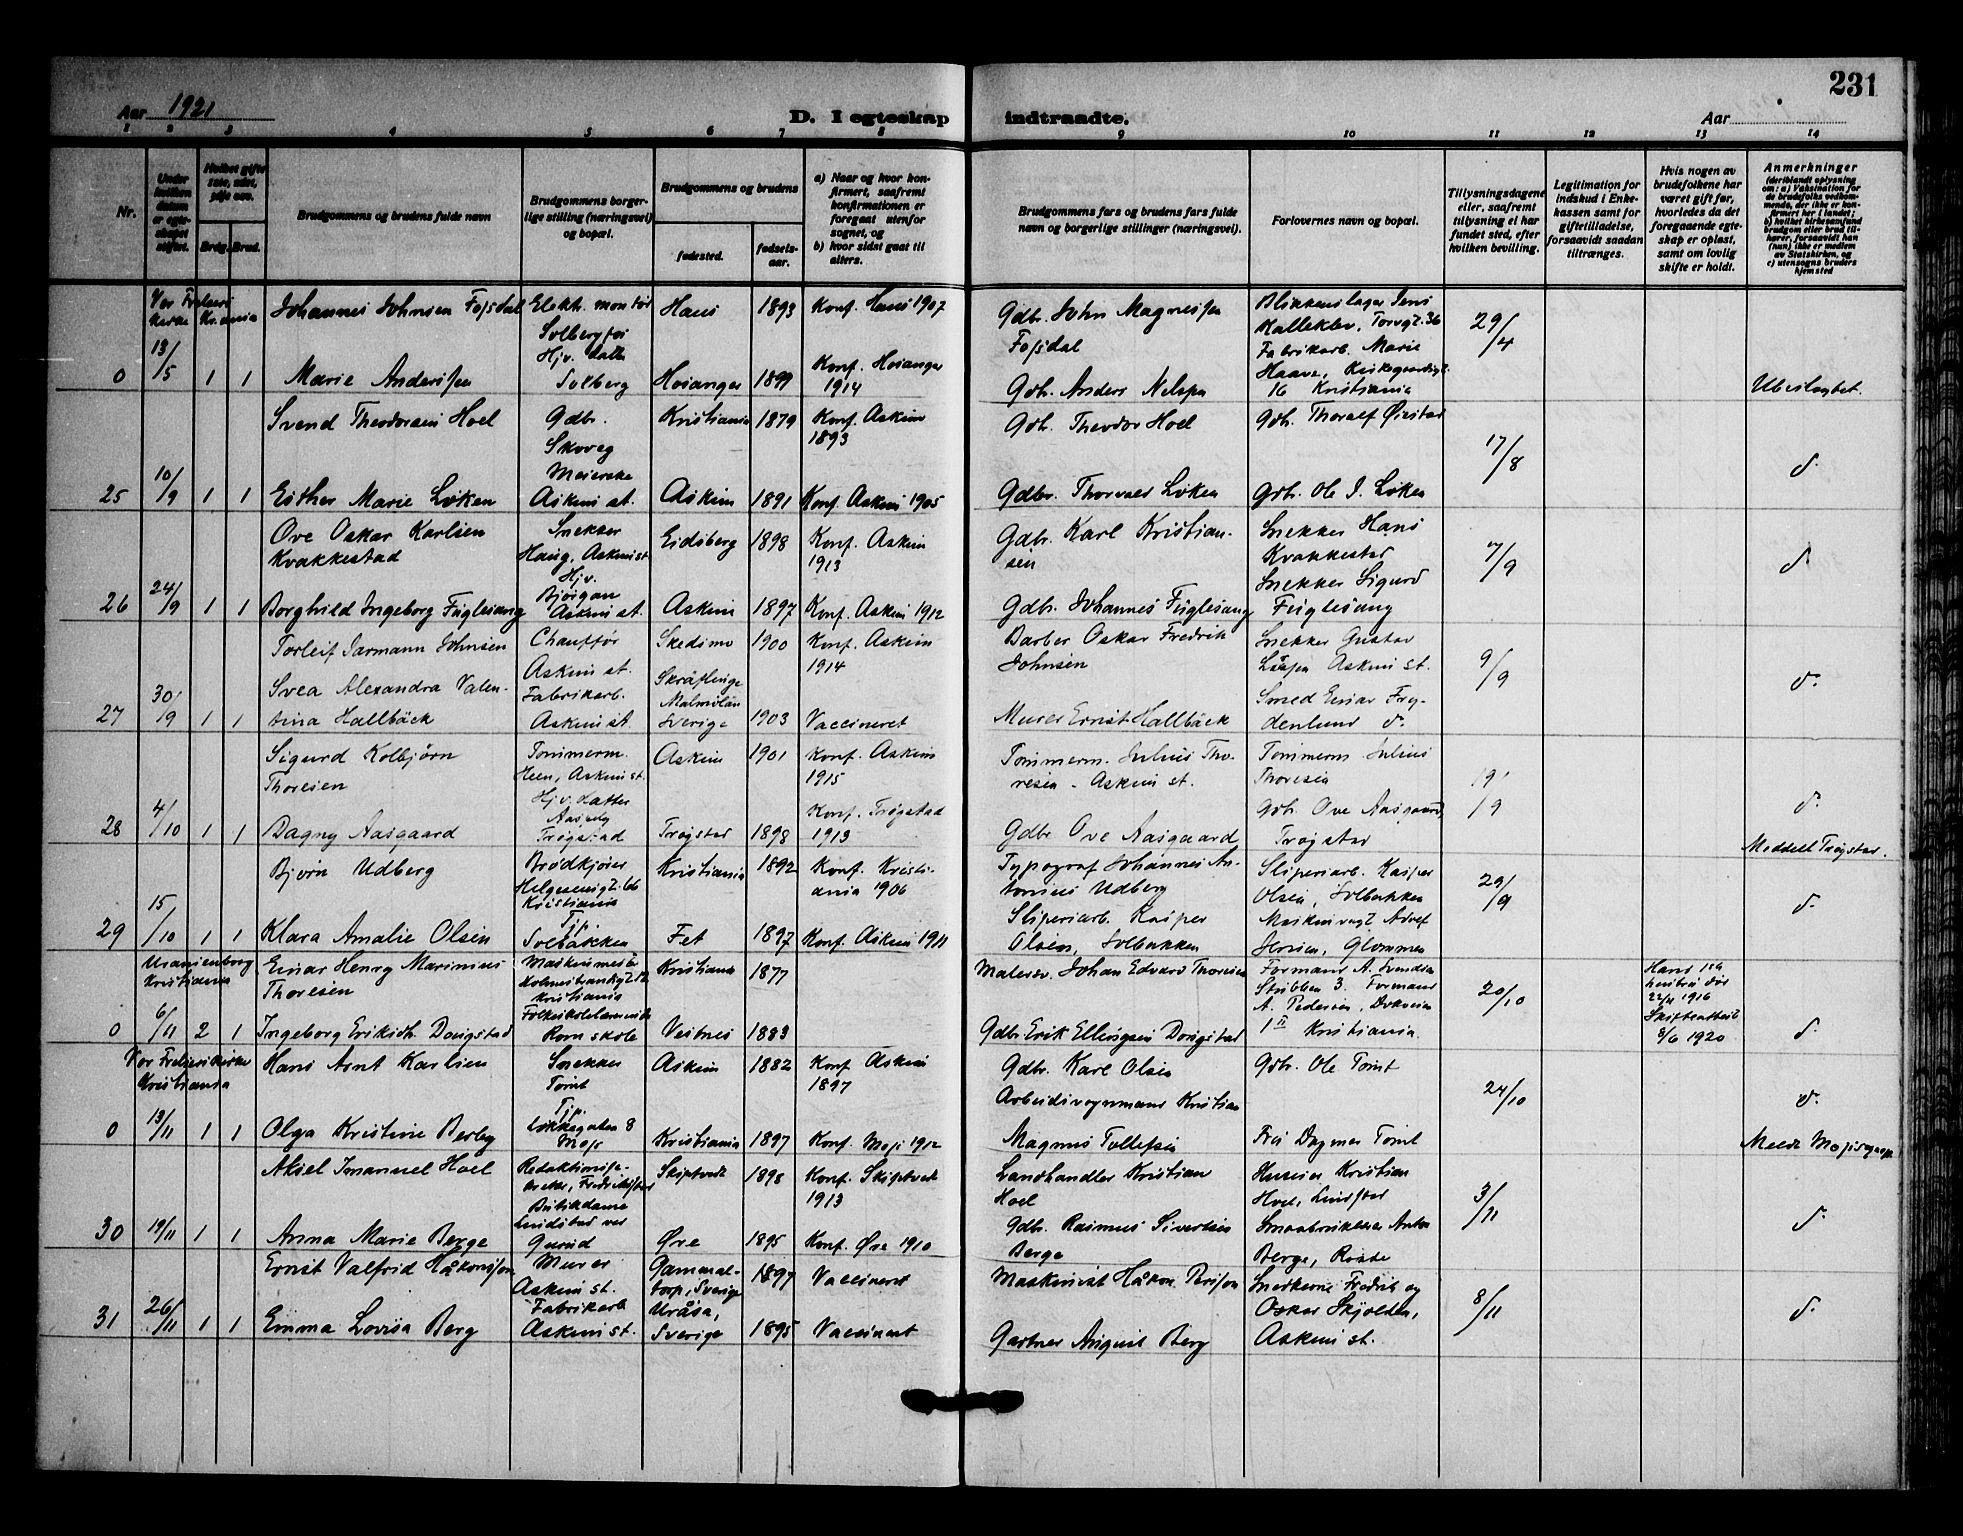 231
Aar 1921
D. I egteskap indtraadte.
Aar
1 2 3 4 5 6 7 8 9 10 11 12 13 14
Nr.
Under hvilken datum er egteskapet stiftet.
Hvilket gifte
Brdg. Brud.
Brudgommens og brudens fulde navn
Brudgommens borgerlige stilling (næringsvei) og bopæl.
Brudgommens og brudens
fødested.
fødselsaar.
a) Naar og hvor konfirmert, saafremt konfirmationen er foregaat utenfor sognet, og
b) hvor sidst gaat til alters.
Brudgommens fars og brudens fars fulde navn og borgerlige stillinger (næringsvei).
Forlovernes navn og bopæl.
Tillysningsdagene eller, saafremt tillysning ei har fundet sted, efter hvilken bevilling.
Legitimation for indskud i Enkekassen samt for giftetilladelse, forsaavidt saadan tiltrænges.
Hvis nogen av brudefolkene har været gift før, hvorledes da det foregaaende egteskap er opløst, samt om lovlig skifte er holdt.
Anmerkninger
(deriblandt oplysning om: a) Vaksination for de brudefolks vedkommende, der ikke er konfirmert her i landet; b) hvilket kirkesamfund brudgom eller brud tilhører, forsaavidt han (hun) ikke er medlem av Statskirken, og c) utensogns bruders hjemsted
Vor Frelsers Kirke Kr.ania
Johannes Johnsen Fossdal Elekt. montør Solbergfos Haus 1893 Konf. Haus 1907 Gdbr. John Magnessen Fossdal Blikkenslager Jens Kalleklev, Torvgt. 36 29/4
0 13/5 1 1 Marie Anderssen Hjv. datter Solberg Høianger 1899 Konf. Høianger 1914 Gdb. Anders Nelssen Fabrikarb. Marie Haave, 16 Kristiania Ubeslægtet.
Svend Theodorsen Hoel Gdbr. Skoveg Kristiania 1879 Konf. Askim 1893 Gdb. Theodor Hoel Gdb. Thoralf Ørstad 17/8
25 10/9 1 1 Esther Marie Løken Meierske Askim st. Askim 1891 Konf. Askim 1905 Gdbr. Thorvald Løken Gdb. Ole J. Løken d.
Ove Oskar Karlsen Kvakkestad Snekker Haug, Askim st. Eidsberg 1898 Konf. Askim 1913 Gdbr. Karl Kristiansen Snekker Hans Kvakkestad 7/9
26 24/9 1 1 Borghild Ingeborg Fuglesang Hjv. Bjørgan Askim st. Askim 1897 Konf. Askim 1912 Gdbr. Johannes Fuglesang Snekker Sigurd Fuglesang d.
Torleif Jarmann Johnsen Chauffør Askim st. Skedsmo 1900 Konf. Askim 1914 Barber Oskar Fredrik Johnsen Snekker Gustav Askim st. 9/9
27 30/9 1 1 Svea Alexandra Valentina Hallbäck Fabrikarb. Askim st. Skräflinge Malmölän Sverige 1903 Vaccineret Murer Ernst Hallbäck Smed Einar Frydenlund d. d.
Sigurd Kolbjørn Thoresen Tømmerm. Heen, Askim st. Askim 1901 Konf. Askim 1915 Tømmerm. Julius Thoresen - Askim st. Tømmerm Julius Thoresen 19/9
28 4/10 1 1 Dagny Aasgaard Hjv. datter Trøgstad Trøgstad 1898 Konf. Trøgstad 1913 Gdbr Ove Aasgaard Gdb. Ove Aasgaard, Trøgstad d. Meddelt Trøgstad.
Bjørn Udberg Brødkjører Helgesensgt. 66 Kristiania Kristiania 1892 Konf. Kristiania 1906 Typograf Johannes Antonius Udberg Sliperiarb. Kasper Olsen, Solbakken 29/9
29 15/10 1 1 Klara Amalie Olsen Tjp. Solbakken Fet 1897 Konf. Askim 1911 Sliperiarb. Kasper Olsen, Solbakken Maskinvogt. Adolf Jensen, Glommen d.
Uranienborg Kristiania
Einar Henry Marinius Thoresen Maskinmester Kristiania Kristiania 1877 Malersv. Johan Edvard Thoresen Formand A. Svendsen Stubben 3. Formand A. Pedersen, 1 II Kristiania 20/10 Hans 1ste hustru død 22/4 1916 Skifteattest 8/6 1920
0 6/11 2 1 Ingeborg Eriksdh. Dongstad Folkeskolelærerinde Rom skole Vestnes 1883 Gdbr. Erik Ellingsen Dongstad d.
Vor Frelserskirke Kristiania
Hans Arnt Karlsen Snekker Tømt Askim 1882 Konf Askim 1897 Gdbr. Karl Olsen Gdb. Ole Tømt 24/10
0 13/11 1 1 Olga Kristine Berby Tjp. Løkkegaten 8 Moss Kristiania 1897 Konf. Moss 1912 Arbeidsvognmand Kristian Magnus Tollefsen Frk Dagmar Tømt d. Meldt Moss sogn
Aksel Imanuel Hoel Fredrikstad Skiptvedt 1898 Konf. Skiptvedt 1913 Landhandler Kristian Hoel Kristian Hoel, 3/11
30 19/11 1 1 Anna Marie Berge Butikdame Øre 1895 Konf. Øre 1910 Gdb. Rasmus Sivertsen Berge Smaabrukker Anton Berge, d.
Ernst Valfrid Håkonsson Murer Askim st. Gammaltorp, Sverige 1897 Vaccineret Maskinist Håkon Persson Snekkerne Fredrik og Oskar Skjolden, Askim st. 8/11
31 26/11 1 1 Emma Lovisa Berg Fabrikarb Askim st. Uråsa, Sverige 1895 Vaccineret Gartner August Berg d.